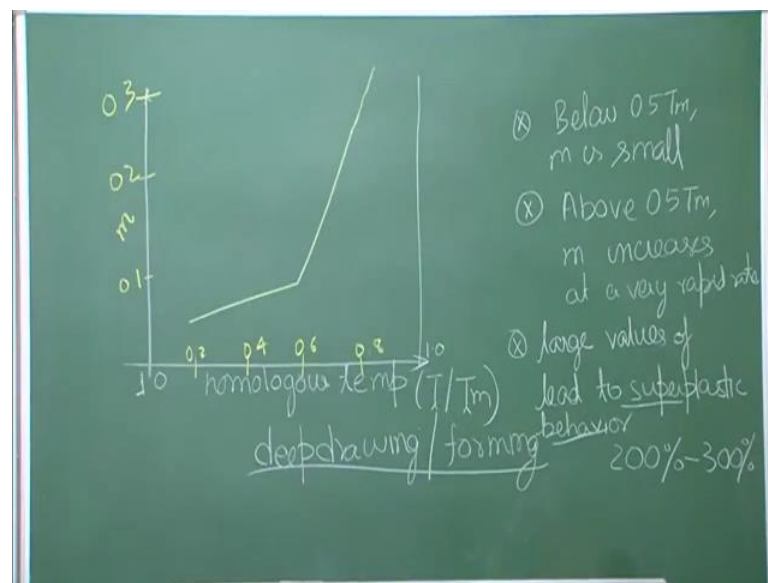 0 3
0 2
m
0 1
0.2 0.4 0.6 0.8 1.0
0
homologous temp (T/Tm)
deepdrawing/forming
Below 05Tm,
m is small
Above 05Tm,
m increases
at a very rapid rate
large values of
lead to superplastic
behavior
200%-300%